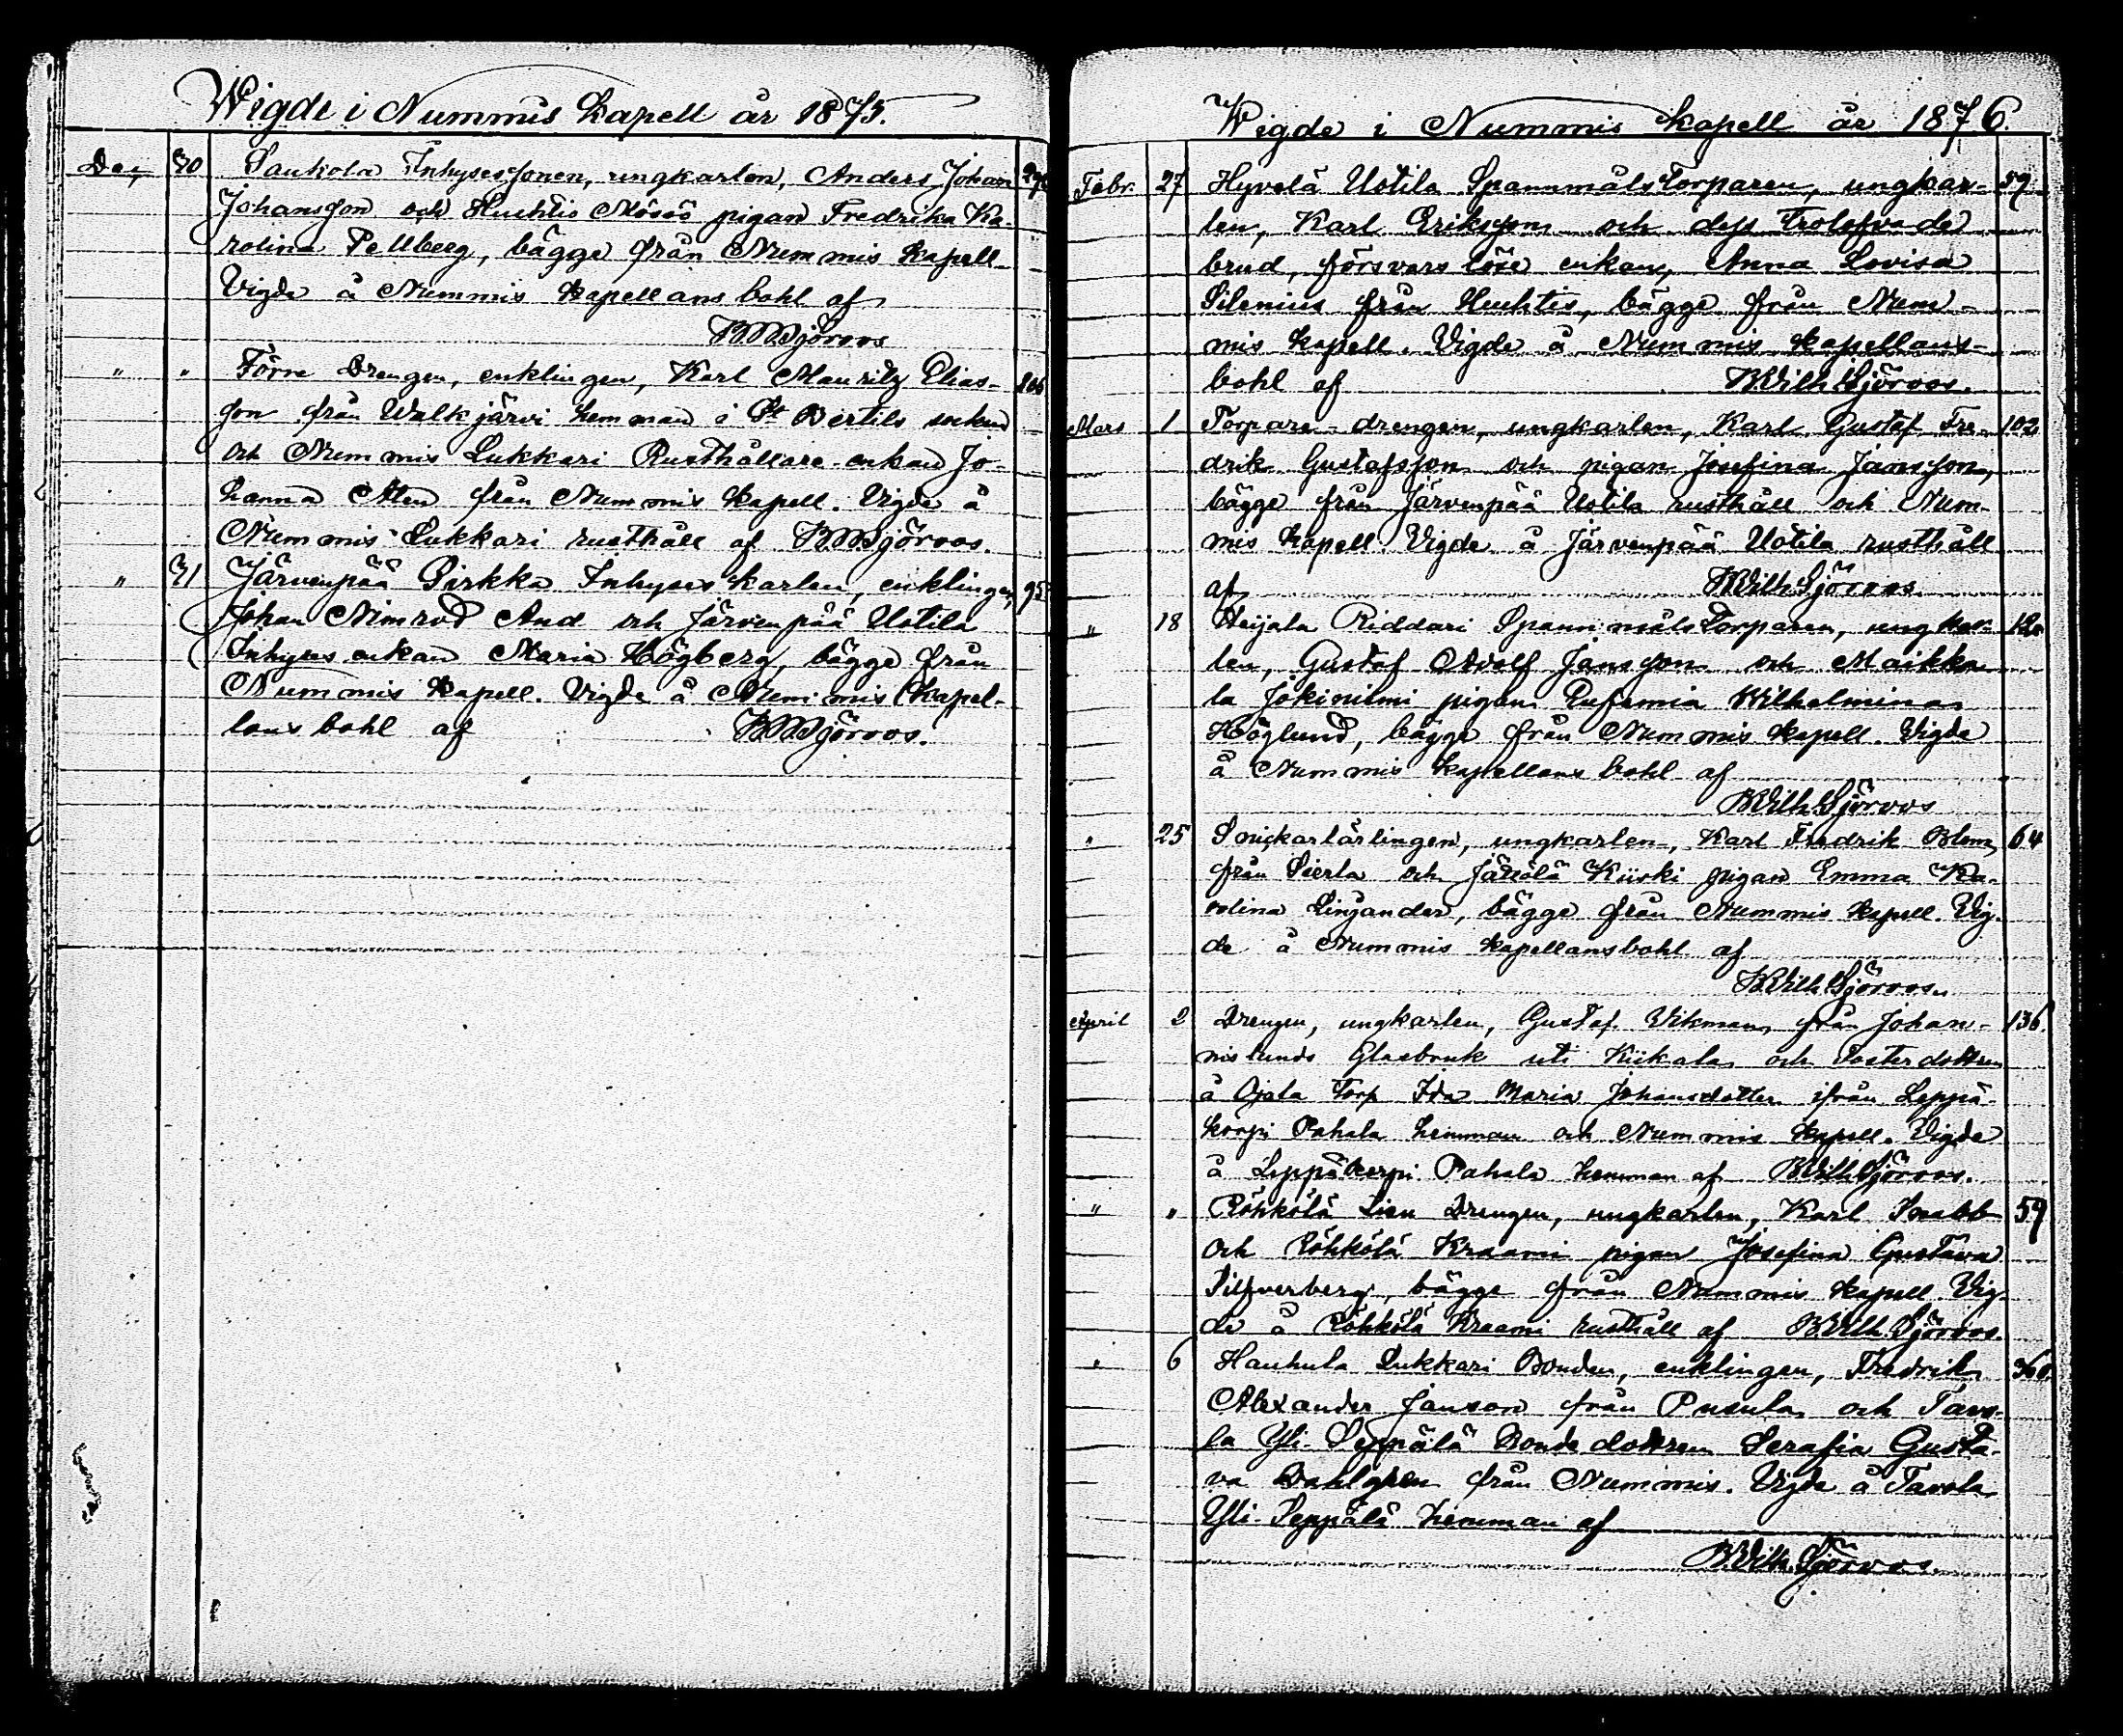 Wigde i Nummis Kapell år 1875.
Dec. 30 Saukola Inhysessonen, ungkarlen, Anders Johan
Johansson och Huhtis Mösö pigan Fredrika Ka-
rolina Pellberg, bägge från Nummis Kapell
Vigde å Nummis Kapellans bohl af
" " Förre Drengen, enklingen, Karl Mauritz Elias-
son från Walkjärvi hemman i St Bertils socken
och Nummis Lukkari Rusthållare-enkan Jo-
hanna Alen från Nummis Kapell. Vigde å
Nummis Lukkari rusthåll af
" 31 Järvenpää Pirkka Inhyses karlen, enklingen, 95
Johan Nimrod And och Järvenpää Uotila
Inhyses enkan Maria Högberg, bägge från
Nummis Kapell. Vigde å Nummis Kapel-
lans bohl af
Wigde i Nummis Kapell år 1876.
Febr. 27 Hyvelä Uotila Spannmåls Torparen, ungkar- 59
len, Karl Eriksson och dess Trolofvade
brud, försvarslöse enkan, Anna Lovisa
Silenius från Huhtis, bägge från Num-
mis Kapell. Vigde å Nummis Kapellans-
bohl af BWilh Sjöroos.
Mars 1 Torpare-drengen, ungkarlen, Karl Gustaf Fre- 102
drik Gustafsson och pigan Josefina Jansson,
bägge från Järvenpää Uotila rusthåll och Num-
mis Kapell. Vigde å Järvenpää Uotila rusthåll
af BWilh Sjöroos
" 18 Heijala Riddari Spannmåls Torparen, ungkar-
len, Gustaf Adolf Jansson och Maikka-
la Jokiniemi pigan Eufemia Wilhelmina
Höglund, bägge från Nummis Kapell. Vigde
å Nummis Kapellans bohl af
BWilh Sjöroos
" 25 Snickarlärlingen, ungkarlen, Karl Fredrik Blom, 64
från Sierla och Jättölä Kiiski pigan Emma Ka-
rolina Linjander, bägge från Nummis Kapell. Vig-
de å Nummis Kapellansbohl af
BWilh Sjöroos.
April 2 Drengen, ungkarlen, Gustaf Vikman, från Johan- 136.
nislunds Glasbruk uti Kiikala och Fosterdottren
å Ojala Torp Ida Maria Johansdotter ifrån Leppä-
korpi Pahala hemman och Nummis Kapell. Vigde
å Leppäkorpi Pahala hemman af BWilh Sjöroos.
" " Röhkölä Sien Drengen, ungkarlen, Karl Snabb 59
och Röhkölä Kraami pigan Josefina Gustava
Silfverberg, bägge från Nummis Kapell Vig-
de å Röhkölä Kraami rusthåll af BWilh Sjöroos.
" 6 Hauhula Lukkari Bonden, enklingen, Fredrik
Alexander Janson från Pusula och Tavo-
la Yli-Seppälä Bonde dottren Serafia Gusta-
va Dahlgren från Nummis. Vigde å Tavola
Yli-Seppälä hemman af
BWilh. Sjöroos.